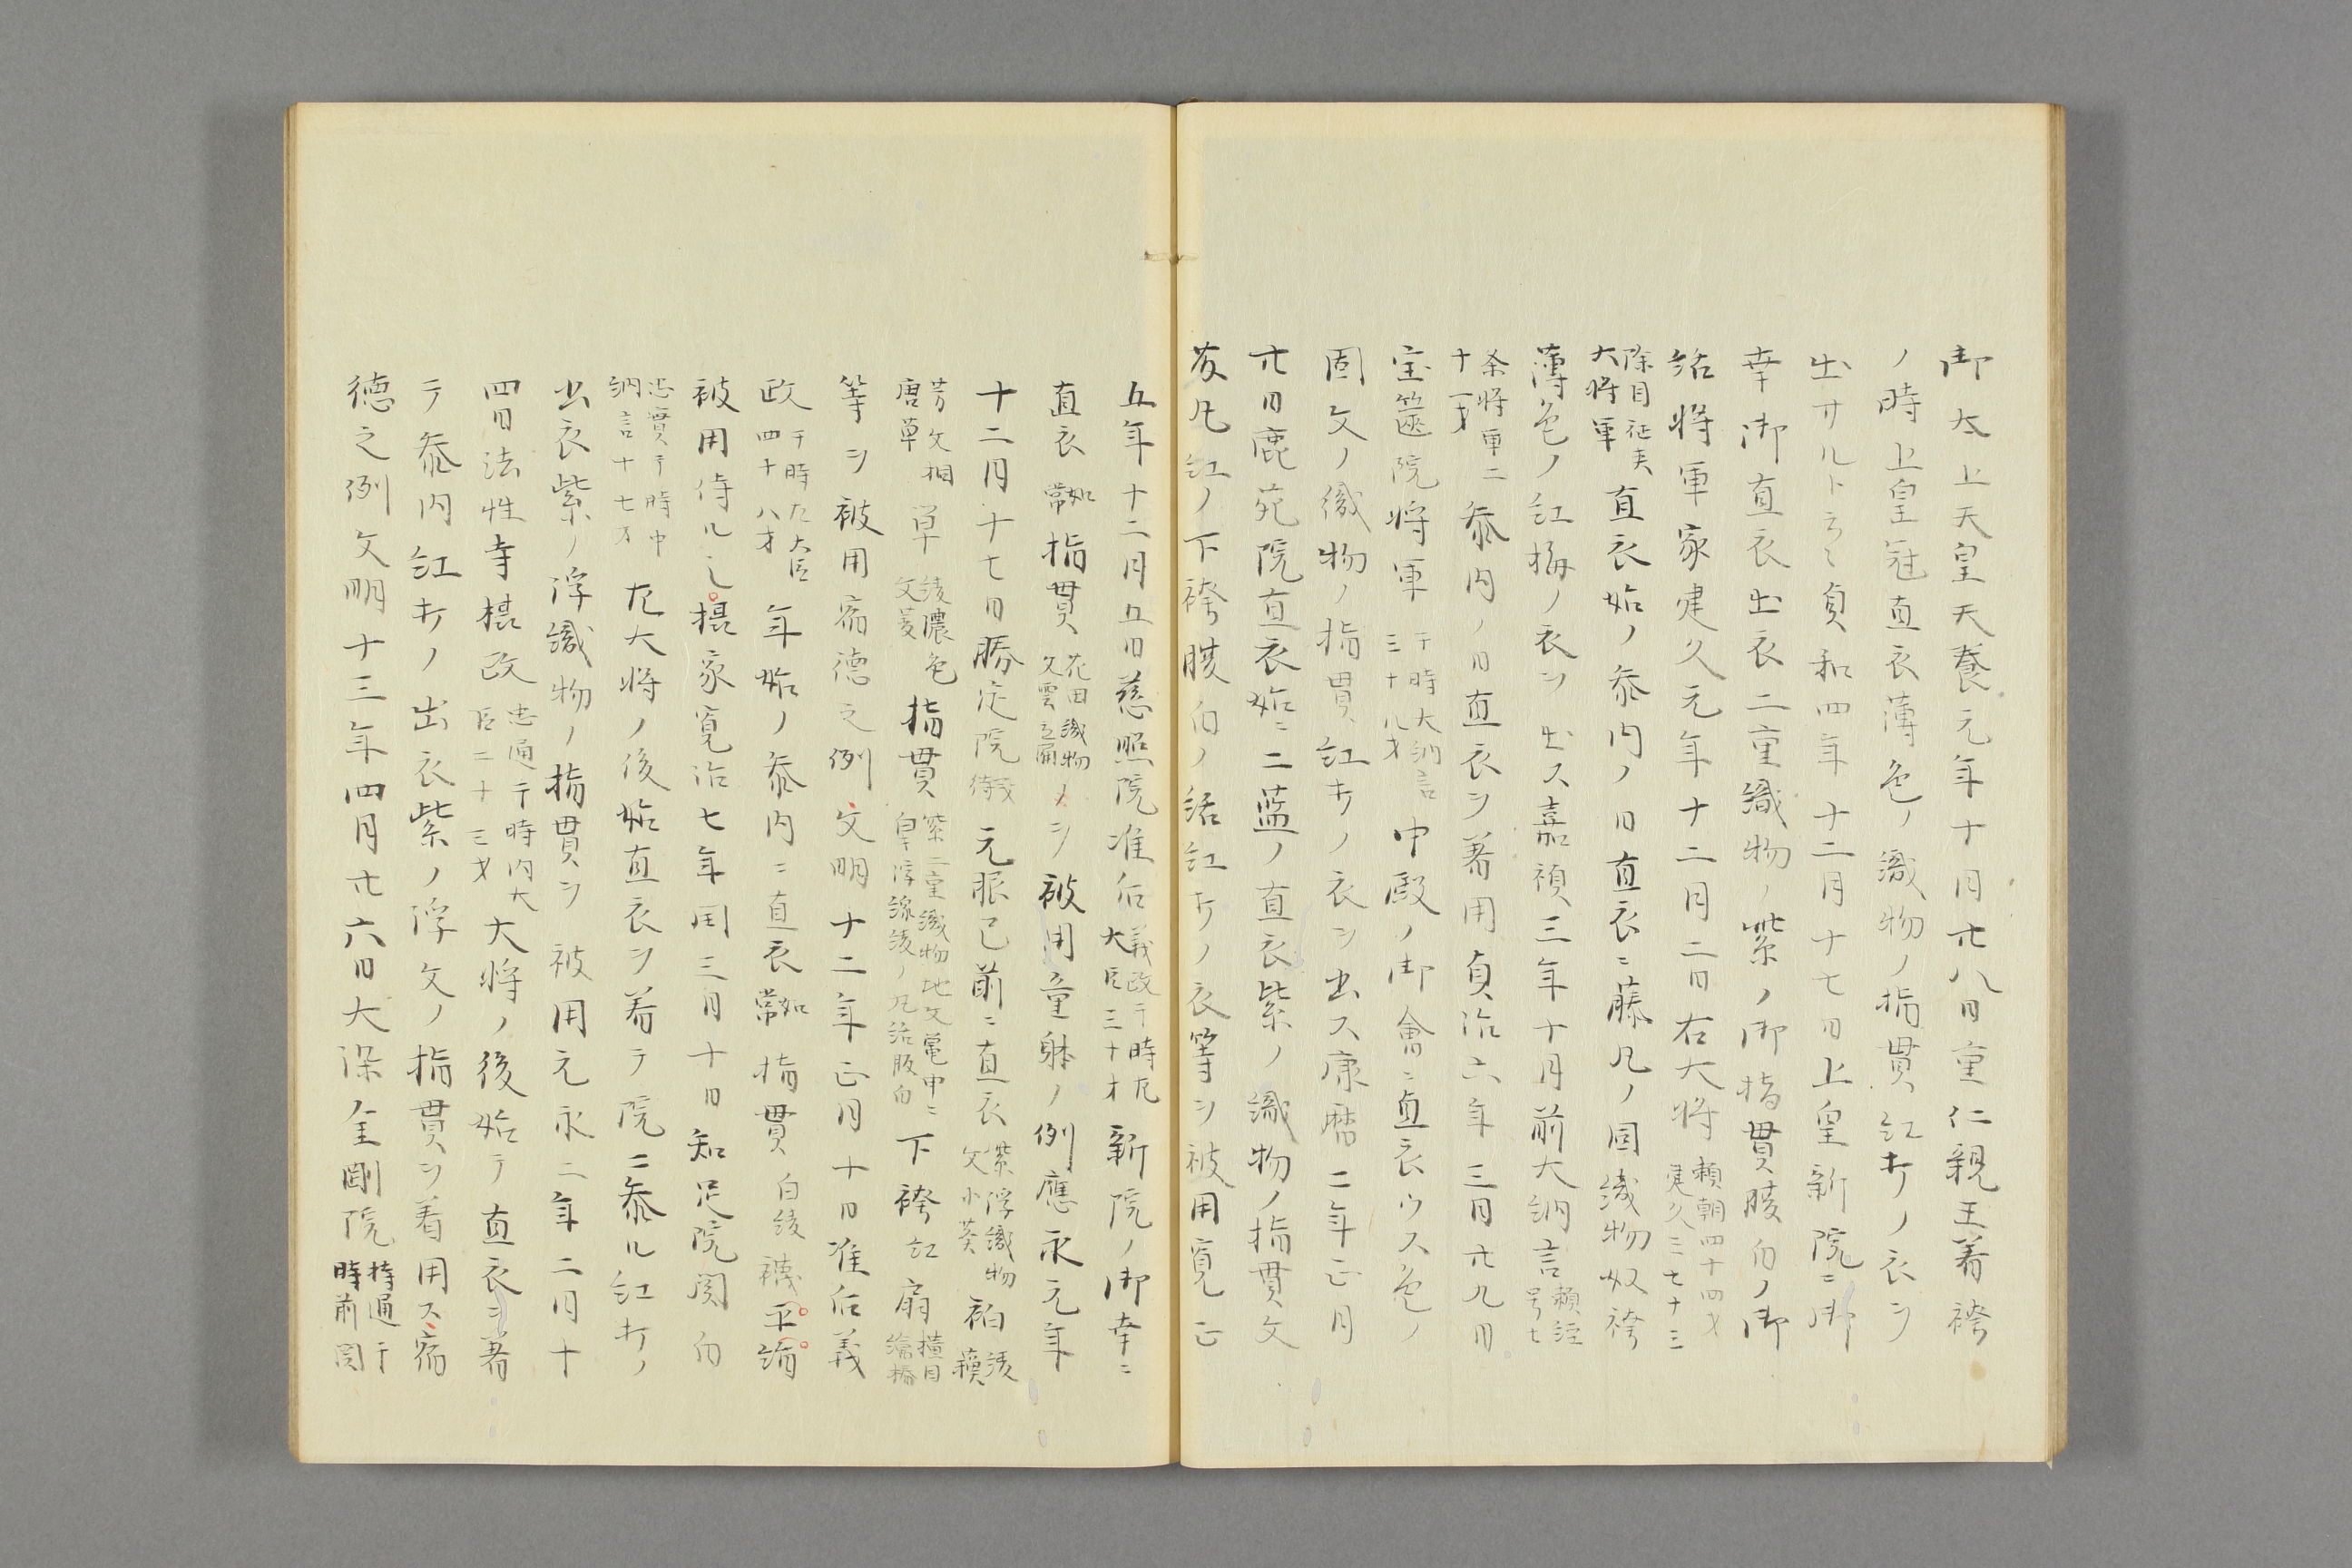 御太上天皇天養元年十月廿八日重仁親王着袴
ノ時上皇冠直衣薄色ノ織物ノ指貫紅打ノ衣ヲ
出サルト云々貞和四年十二月十七日上皇新院ニ御
幸御直衣出衣二重織物ノ紫ノ御指貫腹白ノ御
結将軍家建久元年十二月二日右大将 頼朝四十四才 建久三七十三
除目征夷 大将軍 直衣始ノ参内ノ日直衣ニ藤丸ノ固織物奴袴
薄色ノ紅梅ノ衣ヲ出ス嘉禎三年十月前大納言 頼経 号七
条将軍二 十才 参内ノ日直衣ヲ著用貞治六年三月廿九日
宝篋院将軍 于時大納言 三十八才 中殿ノ御會ニ直衣ウス色ノ
固文ノ織物ノ指貫紅打ノ衣ヲ出ス康暦二年正月
廿日鹿苑院直衣始ニ二藍ノ直衣紫ノ織物ノ指貫文
藤丸紅ノ下袴腹白ノ結紅打ノ衣等ヲ被用寛正
五年十二月五日慈照院准后 義政于時左 大臣三十才 新院ノ御幸ニ
直衣 如常 指貫 花田織物 文雲立涌 ヲ被用童躰ノ例應永元年
十二月十七日勝定院 義持 元服已前ニ直衣 紫浮織物 文小葵 袙
芳文相 唐草 単 綾濃色 文菱 指貫 紫二重織物地文亀甲ニ 下袴 紅 扇
等ヲ被用宿徳之例文明十二年正月十日准后義
政 于時左大臣 四十八才 年始ノ参内ニ直衣 如常 指貫 白綾 襪平絹
被用侍ル也摂家寛治七年閏三月十日知足院関白
忠實于時中 納言十七才 左大将ノ後始直衣ヲ着テ院ニ参ル紅打ノ
出衣紫ノ浮織物ノ指貫ヲ被用元永二年二月十
四日法性寺摂政 忠通于時内大 臣二十三才 大将ノ後始テ直衣ヲ著
テ参内紅打ノ出衣紫ノ浮文ノ指貫ヲ着用ス宿
徳之例文明十三年四月廿六日大染金剛院 持通于 時前関